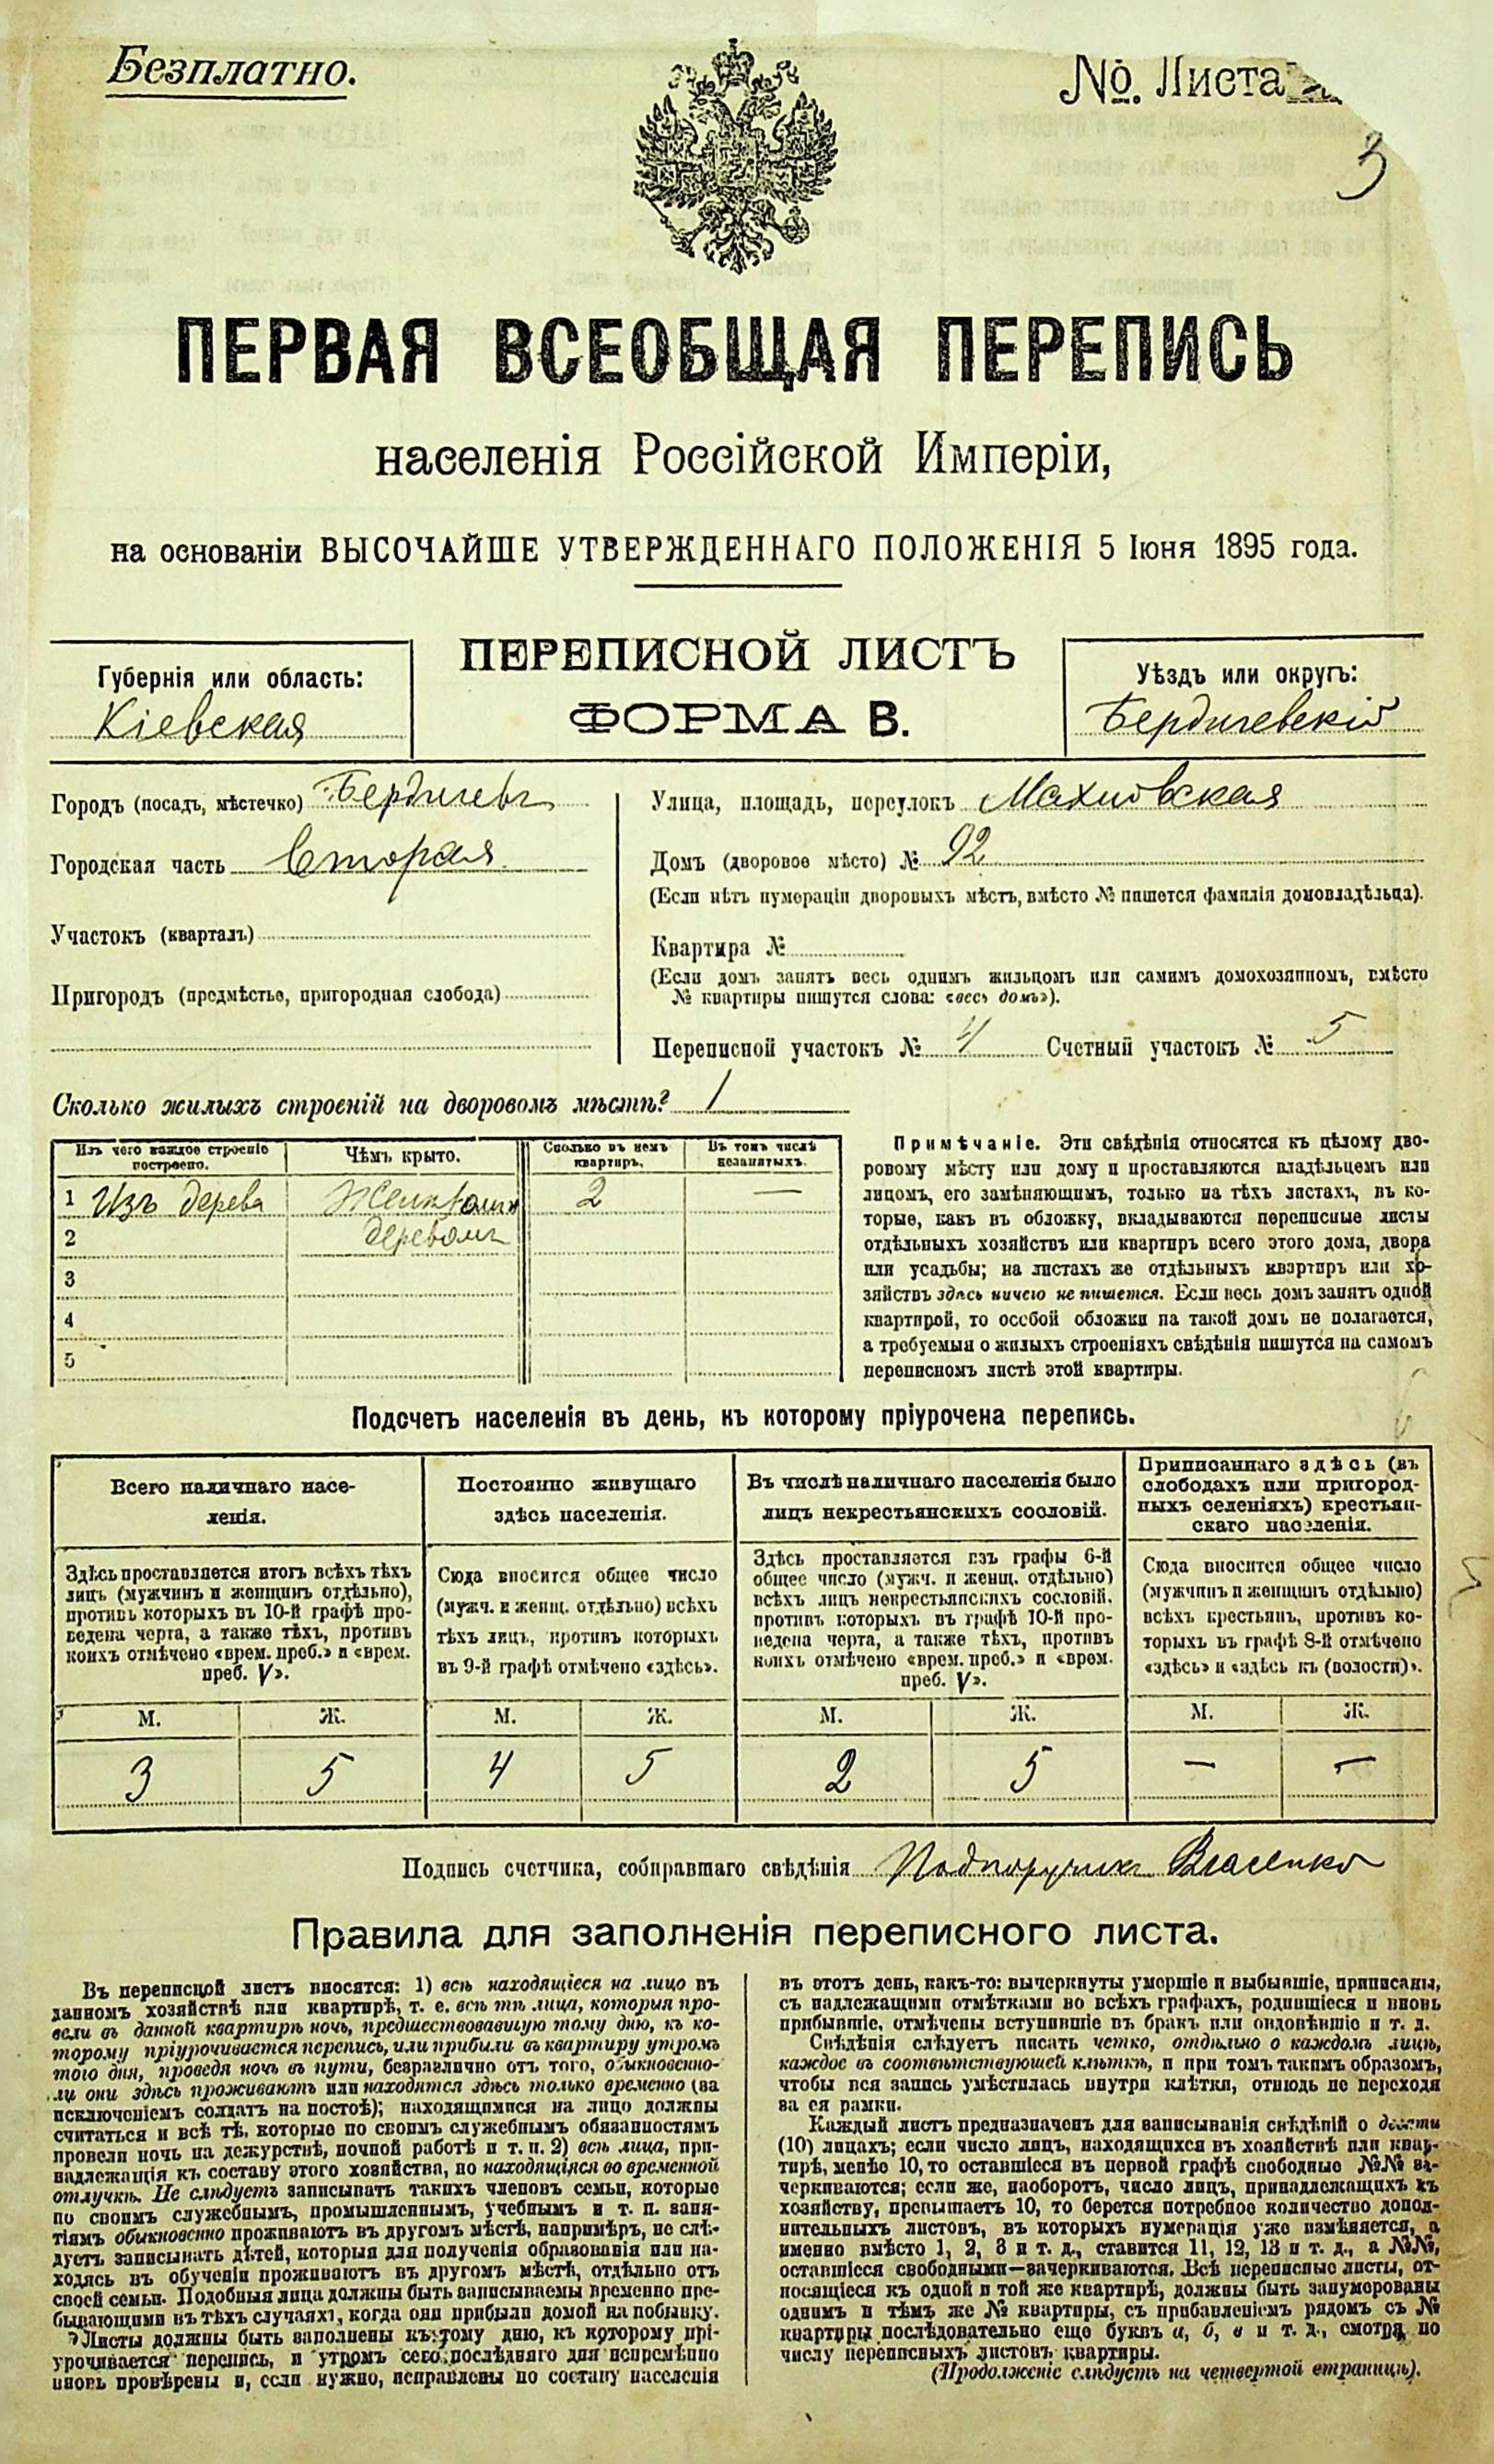 Безплатно.
№. Листа
3
ПЕРВАЯ ВСЕОБЩАЯ ПЕРЕПИСЬ
населенія Россійской Имперіи,
на основаніи ВЫСОЧАЙШЕ УТВЕРЖДЕННАГО ПОЛОЖЕНІЯ 5 Іюня 1895 года.
Губернія или область:
Кіевская
ПЕРЕПИСНОЙ ЛИСТЪ
ФОРМА В.
Уѣздъ или округъ:
Бердичевскій
Городъ (посадъ, мѣстечко) Бердичевъ
Городская часть Вторая
Участокъ (кварталъ)
Пригородъ (предмѣстье, пригородная слобода)
Улица, площадь, переулокъ Махновская
Домъ (дворовое мѣсто) № 92
(Если нѣтъ нумераціи дворовыхъ мѣстъ, вмѣсто № пишется фамилія домовладѣльца).
Квартира №
(Если домъ занятъ весь однимъ жильцомъ или самимъ домохозяиномъ, вмѣсто
№ квартиры пишутся слова: «весь домъ»).
Переписной участокъ № 4 Счетный участокъ № 5
Сколько жилыхъ строеній на дворовомъ мѣстѣ? 1
Изъ чего каждое строеніе построено.
Чѣмъ крыто.
Сколько въ немъ квартиръ.
Въ томъ числѣ незанятыхъ.
1 Изъ дерева 2 —
2 деревомъ
3
4
5
Примѣчаніе. Эти свѣдѣнія относятся къ цѣлому дво-
ровому мѣсту или дому и проставляются владѣльцемъ или
лицомъ, его замѣняющимъ, только на тѣхъ листахъ, въ ко-
торые, какъ въ обложку, вкладываются переписные листы
отдѣльныхъ хозяйствъ или квартиръ всего этого дома, двора
или усадьбы; на листахъ же отдѣльныхъ квартиръ или хо-
зяйствъ здѣсь ничего не пишется. Если весь домъ занятъ одной
квартирой, то особой обложки на такой домъ не полагается,
а требуемыя о жилыхъ строеніяхъ свѣдѣнія пишутся на самомъ
переписномъ листѣ этой квартиры.
Подсчетъ населенія въ день, къ которому пріурочена перепись.
Всего наличнаго насе-
ленія.
Здѣсь проставляется итогъ всѣхъ тѣхъ
лицъ (мужчинъ и женщинъ отдѣльно),
противъ которыхъ въ 10-й графѣ про-
ведена черта, а также тѣхъ, противъ
коихъ отмѣчено «врем. преб.» и «врем.
преб. V».
М. Ж.
3 5
Постоянно живущаго
здѣсь населенія.
Сюда вносится общее число
(мужч. и женщ. отдѣльно) всѣхъ
тѣхъ лицъ, противъ которыхъ
въ 9-й графѣ отмѣчено «здѣсь».
М. Ж.
4 5
Въ числѣ наличнаго населенія было
лицъ некрестьянскихъ сословій.
Здѣсь проставляется изъ графы 6-й
общее число (мужч. и женщ. отдѣльно)
всѣхъ лицъ некрестьянскихъ сословій,
противъ которыхъ въ графѣ 10-й про-
ведена черта, а также тѣхъ, противъ
коихъ отмѣчено «врем. преб.» и «врем.
преб. V».
М. Ж.
2 5
Приписаннаго здѣсь (въ
слободахъ или пригород-
ныхъ селеніяхъ) крестьян-
скаго населенія.
Сюда вносится общее число
(мужчинъ и женщинъ отдѣльно)
всѣхъ крестьянъ, противъ ко-
торыхъ въ графѣ 8-й отмѣчено
«здѣсь» и «здѣсь къ (волости)».
М. Ж.
— —
Подпись счетчика, собиравшаго свѣдѣнія Подпоручикъ Власенко
Правила для заполненія переписного листа.
Въ переписной листъ вносятся: 1) всѣ находящіеся на лицо въ
данномъ хозяйствѣ или квартирѣ, т. е. всѣ тѣ лица, которыя про-
вели въ данной квартирѣ ночь, предшествовавшую тому дню, къ ко-
торому пріурочивается перепись, или прибыли въ квартиру утромъ
того дня, проведя ночь въ пути, безразлично отъ того, обыкновенно-
ли они здѣсь проживаютъ или находятся здѣсь только временно (за
исключеніемъ солдатъ на постоѣ); находящимися на лицо должны
считаться и всѣ тѣ, которые по своимъ служебнымъ обязанностямъ
провели ночь на дежурствѣ, ночной работѣ и т. п. 2) всѣ лица, при-
надлежащія къ составу этого хозяйства, но находящіяся во временной
отлучкѣ. Не слѣдуетъ записывать такихъ членовъ семьи, которые
по своимъ служебнымъ, промышленнымъ, учебнымъ и т. п. заня-
тіямъ обыкновенно проживаютъ въ другомъ мѣстѣ, напримѣръ, не слѣ-
дуетъ записывать дѣтей, которыя для полученія образованія или на-
ходясь въ обученіи проживаютъ въ другомъ мѣстѣ, отдѣльно отъ
своей семьи. Подобныя лица должны быть записываемы временно пре-
бывающими въ тѣхъ случаяхъ, когда они прибыли домой на побывку.
Листы должны быть заполнены къ тому дню, къ которому прі-
урочивается перепись, и утромъ сего послѣдняго дня непремѣнно
вновь провѣрены и, если нужно, исправлены по составу населенія
въ этотъ день, какъ-то: вычеркнуты умершіе и выбывшіе, приписаны,
съ надлежащими отмѣтками во всѣхъ графахъ, родившіеся и вновь
прибывшіе, отмѣчены вступившіе въ бракъ или овдовѣвшіе и т. д.
Свѣдѣнія слѣдуетъ писать четко, отдѣльно о каждомъ лицѣ,
каждое въ соотвѣтствующей клѣткѣ, и при томъ такимъ образомъ,
чтобы вся запись умѣстилась внутри клѣтки, отнюдь не переходя
за ея рамки.
Каждый листъ предназначенъ для записыванія свѣдѣній о десяти
(10) лицахъ; если число лицъ, находящихся въ хозяйствѣ или квар-
тирѣ, менѣе 10, то оставшіеся въ первой графѣ свободные №№ за-
черкиваются; если же, наоборотъ, число лицъ, принадлежащихъ къ
хозяйству, превышаетъ 10, то берется потребное количество допол-
нительныхъ листовъ, въ которыхъ нумерація уже измѣняется, а
именно вмѣсто 1, 2, 3 и т. д., ставится 11, 12, 13 и т. д., а №№,
оставшіеся свободными—зачеркиваются. Всѣ переписные листы, от-
носящіеся къ одной и той же квартирѣ, должны быть занумерованы
однимъ и тѣмъ же № квартиры, съ прибавленіемъ рядомъ съ №
квартиры послѣдовательно еще буквъ а, б, в и т. д., смотря по
числу переписныхъ листовъ квартиры.
(Продолженіе слѣдуетъ на четвертой страницѣ).